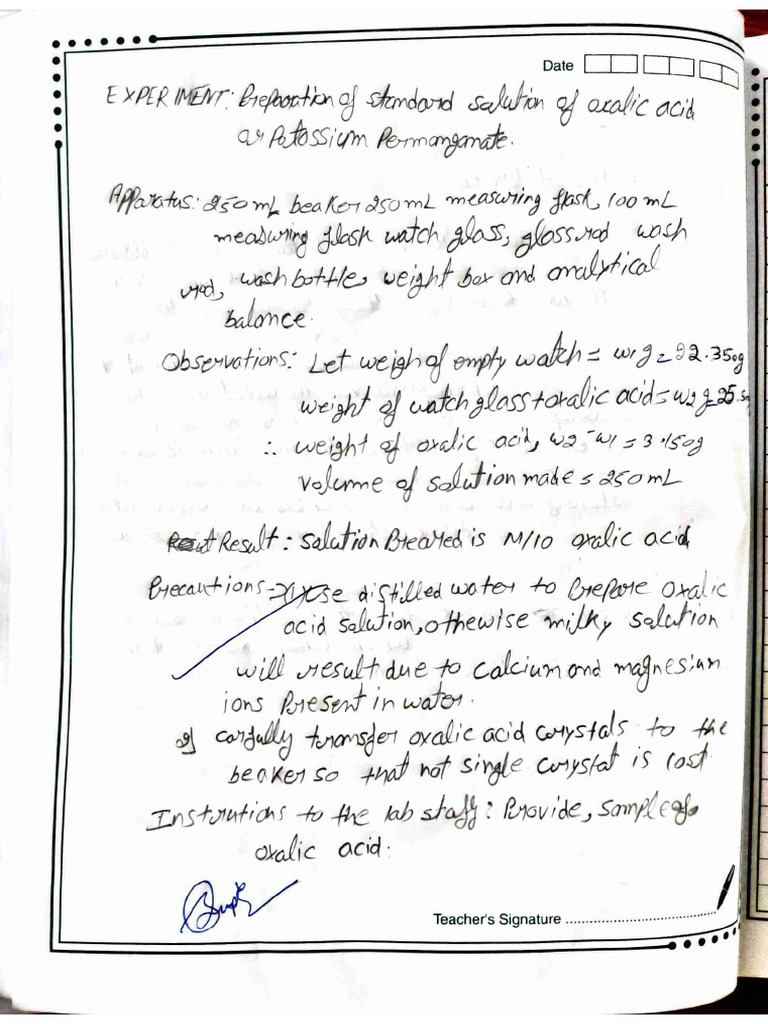 Date
EXPERIMENT: Preparation of standard solution of oxalic acid
or Potassium Permanganate.
Apparatus: 250 mL beaker 250 mL measuring flask, 100 mL
measuring flask watch glass, glass rod wash
rod, wash bottle, weight box and analytical
balance.
Observations: Let weigh of empty watch = w1g = 22.350g
weight of watch glass + oxalic acid = w2g = 25.5
∴ weight of oxalic acid, w2 - w1 = 3.150g
volume of solution made = 250 mL
Result: Solution Preared is M/10 oxalic acid
Precautions => 1) Use distilled water to Prepare oxalic
acid solution, othewise milky solution
will result due to calcium and magnesium
ions Present in water.
2) carfully transfer oxalic acid crystals to the
beaker so that not single crystal is lost
Instrutions to the lab staff: Provide, sample of
oxalic acid.
Teacher's Signature